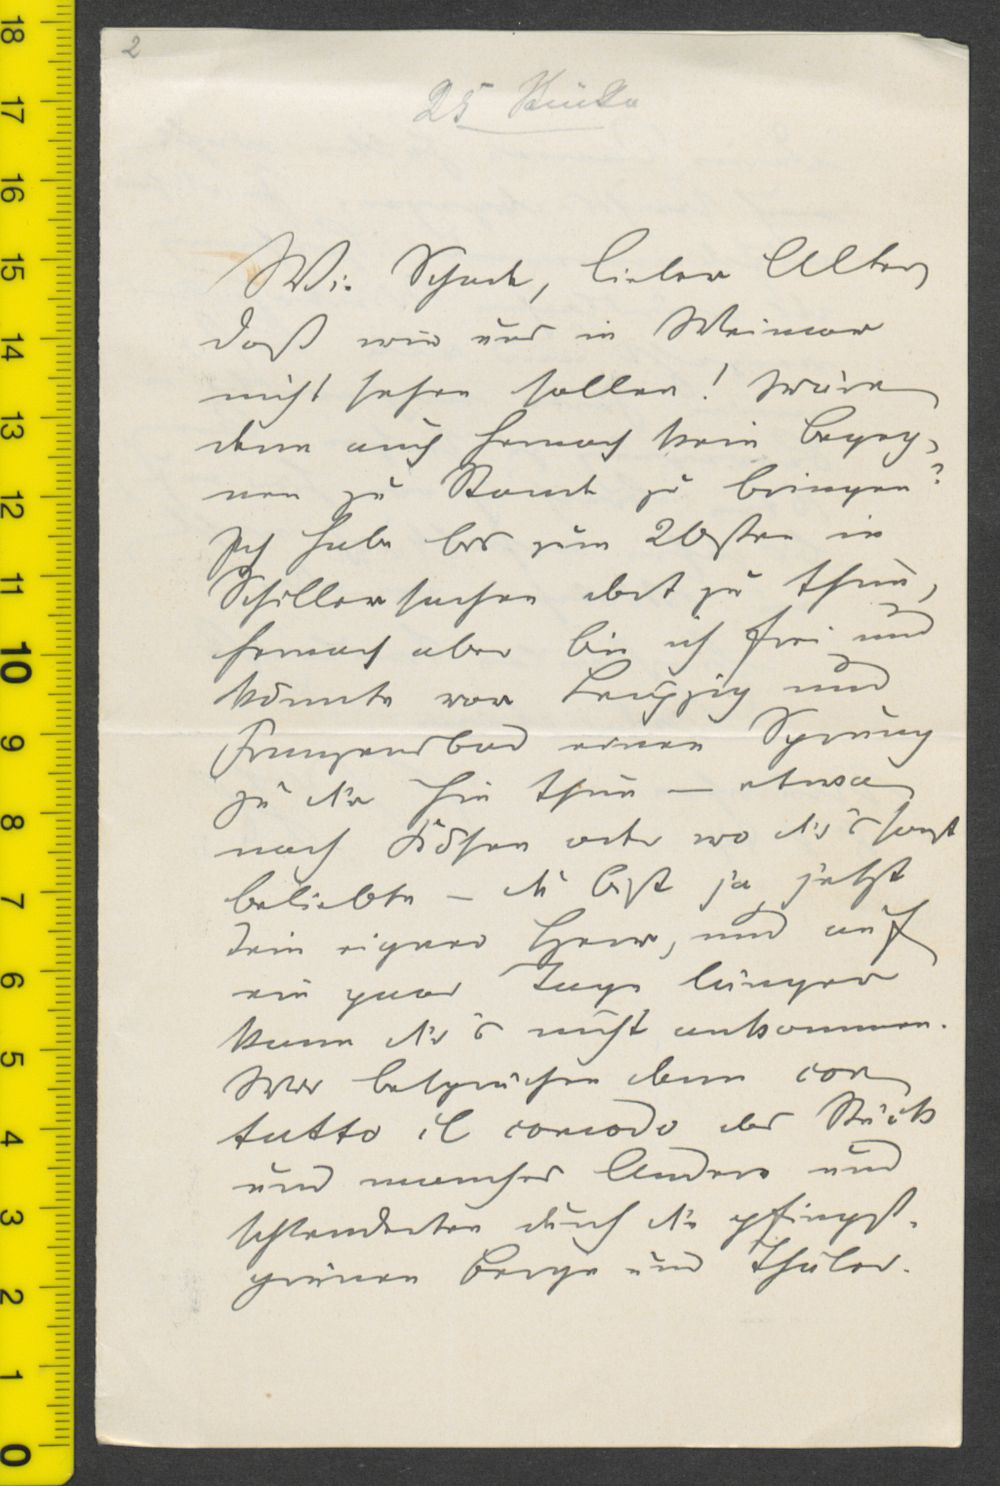 2
25 Stücke
Wie Schade, lieber Alter,
daß wir uns in Weimar
nicht sehen sollen! Wäre
denn auch hernach kein Begeg-
nen zu Stande zu bringen?
Ich habe bis zum 26sten in
Schillersachen dort zu thun,
hernach aber bin ich frei und
könnte von Leipzig und
Franzensbad einen Sprung
zu dir hin thun — etwa
nach Kösen oder wo dir's sonst
beliebte — du bist ja jetzt
dein eigner Herr, und auf
ein paar Tage länger
kann dir's nicht ankommen.
Wir besprächen dann con
tutto il comodo das Stück
und manches Andere und
schlenderten durch die pfingst-
grünen Berge und Thäler.